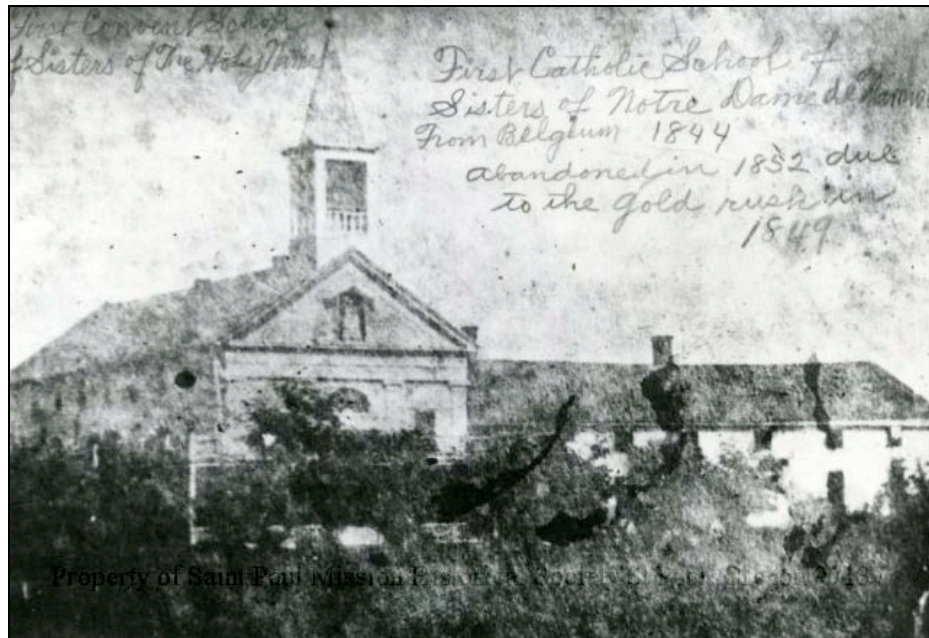 First Convent School
of Sisters of The Holy Names
First Catholic School of
Sisters of Notre Dame de Namur
From Belgium 1844
abandoned in 1852 due
to the gold rush in
1849
Property of Saint Paul Mission Historical Society